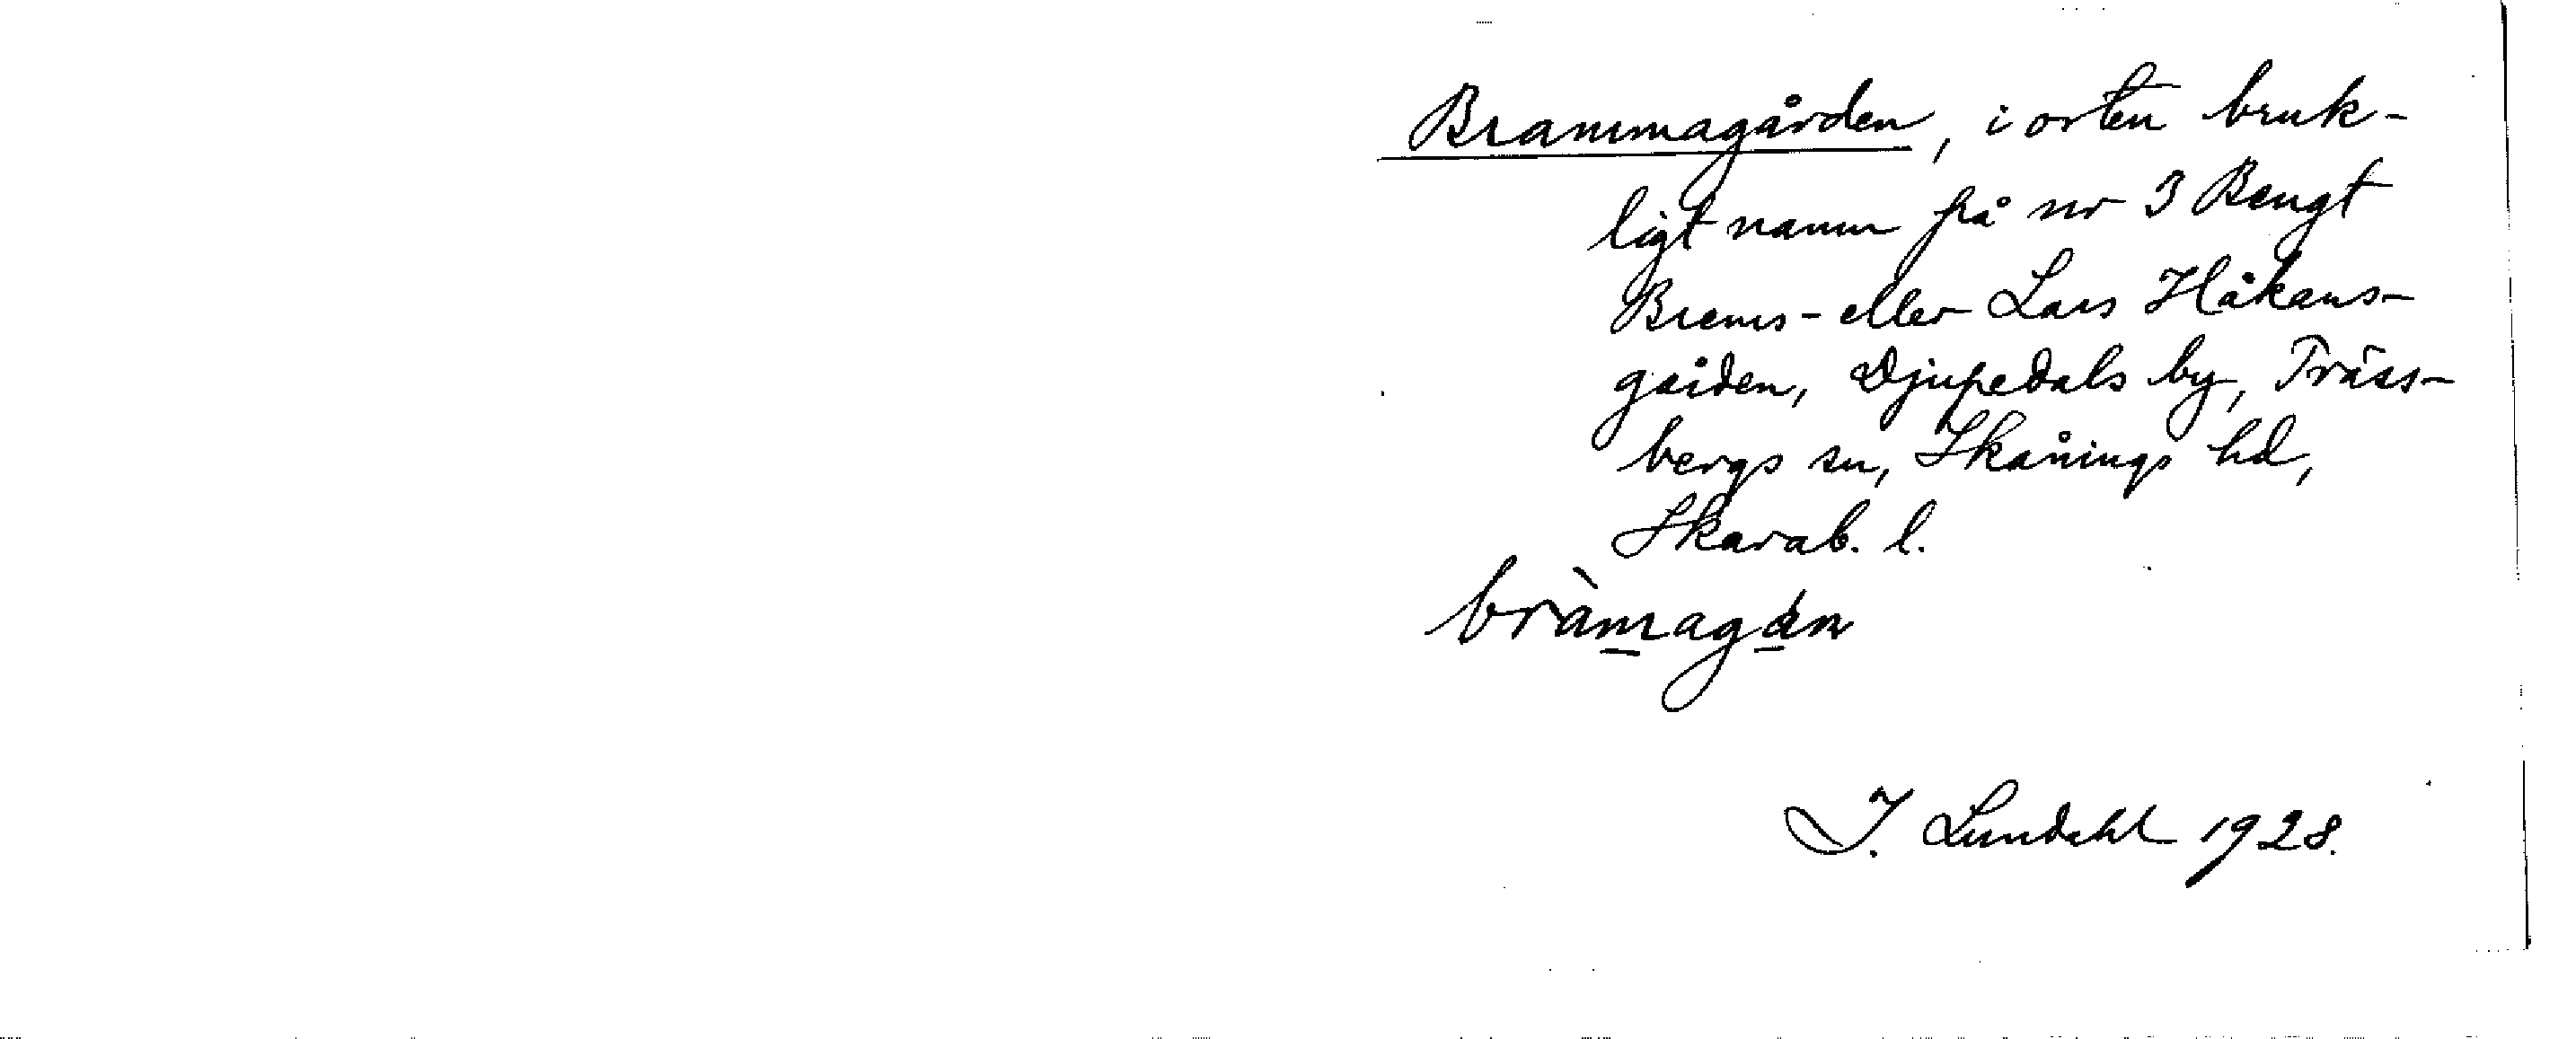 Brammagården, i orten bruk-
ligt namn på nr 3 Bengt
Brems- eller Lars Håkans-
gården, Djupedals by, Träss-
bergs sn, Skånings hd,
Skarab. l.
bràmagån
I. Lundahl 1928.